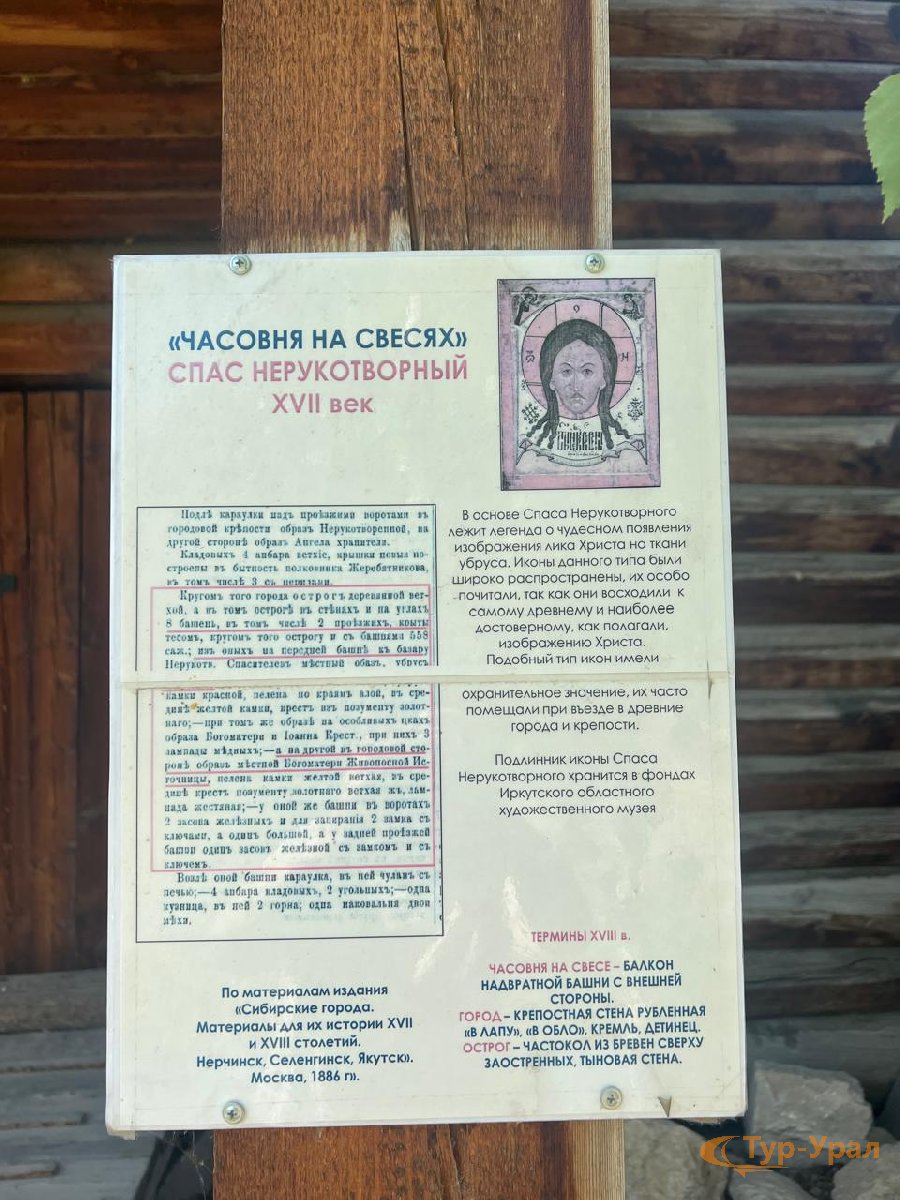 «ЧАСОВНЯ НА СВЕСЯХ»
СПАС НЕРУКОТВОРНЫЙ
XVII век
Подлѣ караулки надъ проѣзжими воротами въ
городовой крѣпости образъ Нерукотворенной, на
другой сторонѣ образъ Ангела хранителя.
Кладовыхъ 4 анбара ветхіе, крышки новыя по-
строены въ бытность полковника Жеребятникова,
въ томъ числѣ 3 съ
Кругомъ того города острогъ деревянной вет-
хой, а въ томъ острогѣ въ стѣнахъ и на углахъ
8 башенъ, въ томъ числѣ 2 проѣзжихъ, крыты
тесомъ, кругомъ того острогу и съ башнями 558
саж.; изъ оныхъ на передней башнѣ къ базару
Нерукотв. Спасителевъ мѣстный образъ, убрусъ
камки красной, пелена по краямъ алой, въ сре-
динѣ желтой камки, крестъ изъ позументу золот-
наго;—при томъ же образѣ на особливыхъ цкахъ
образа Богоматери и Іоанна Крест., при нихъ 3
лампады мѣдныхъ;—а на другой въ городовой сто-
ронѣ образъ мѣстной Богоматери Живоносной Ис-
точницы, пелена камки желтой ветхая, въ сре-
динѣ крестъ позументу золотнаго ветхая жъ, лам-
пада жестяная;—у оной же башни въ воротахъ
2 засова желѣзныхъ и для запиранія 2 замка съ
ключами, а одинъ большой, а у задней проѣзжей
башни одинъ засовъ желѣзной съ замкомъ и съ
ключемъ.
Возлѣ оной башни караулка, въ ней чуланъ съ
печью;—4 анбара кладовыхъ, 2 угольныхъ;—одна
кузница, въ ней 2 горна; одна каковальня двои
мѣхи.
В основе Спаса Нерукотворного
лежит легенда о чудесном появлении
изображения лика Христа на ткани
убруса. Иконы данного типа были
широко распространены, их особо
почитали, так как они восходили к
самому древнему и наиболее
достоверному, как полагали,
изображению Христа.
Подобный тип икон имели
охранительное значение, их часто
помещали при въезде в древние
города и крепости.
Подлинник иконы Спаса
Нерукотворного хранится в фондах
Иркутского областного
художественного музея
По материалам издания
«Сибирские города.
Материалы для их истории XVII
и XVIII столетий.
Нерчинск, Селенгинск, Якутск».
Москва, 1886 г».
ТЕРМИНЫ XVIII в.
ЧАСОВНЯ НА СВЕСЕ – БАЛКОН
НАДВРАТНОЙ БАШНИ С ВНЕШНЕЙ
СТОРОНЫ.
ГОРОД – КРЕПОСТНАЯ СТЕНА РУБЛЕННАЯ
«В ЛАПУ», «В ОБЛО», КРЕМЛЬ, ДЕТИНЕЦ.
ОСТРОГ – ЧАСТОКОЛ ИЗ БРЕВЕН СВЕРХУ
ЗАОСТРЕННЫХ, ТЫНОВАЯ СТЕНА.
Тур-Урал